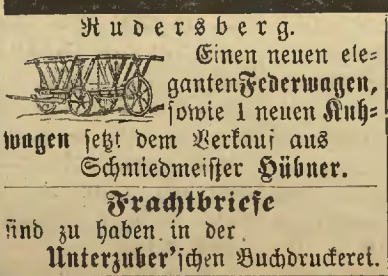 Rudersberg.
Einen neuen ele=
ganten Federwagen,
sowie 1 neuen Kuh=
wagen setzt dem Verkauf aus
Schmiedmeister Hübner.
Frachtbriefe
sind zu haben in der
Unterzuber'schen Buchdruckerei.